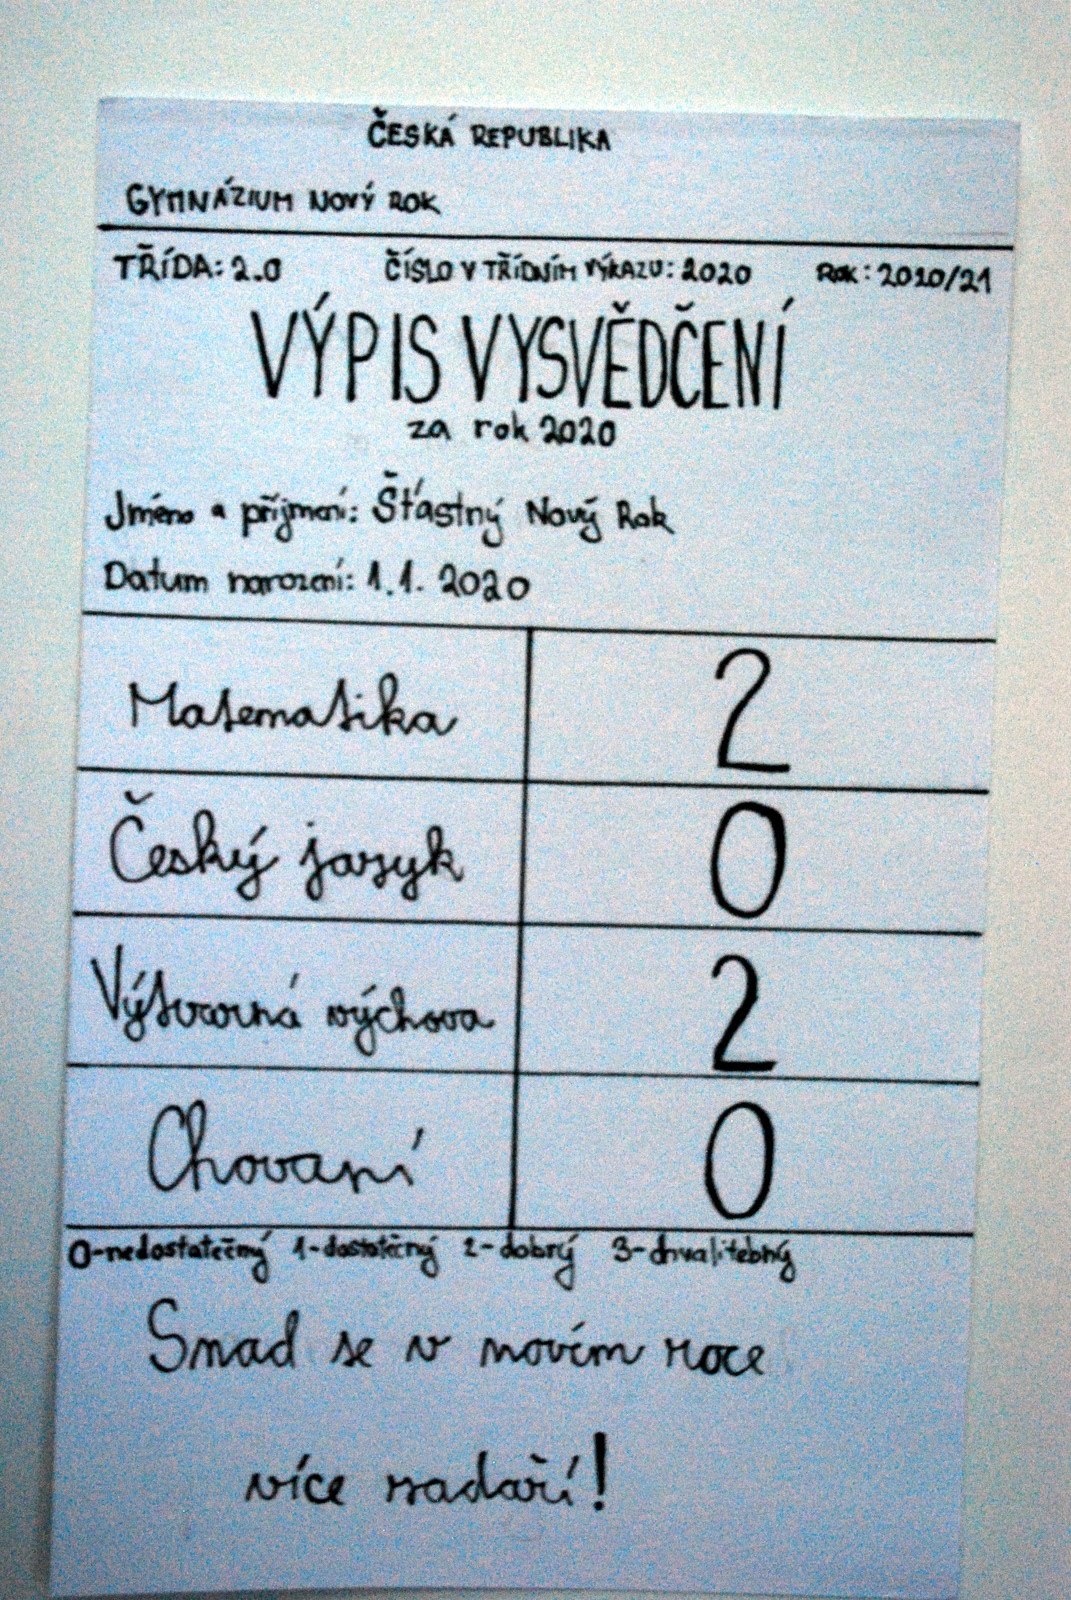 ČESKÁ REPUBLIKA
GYMNÁZIUM NOVÝ ROK
TŘÍDA: 2.0 ČÍSLO V TŘÍDNÍM VÝKAZU: 2020 Rok: 2020/21
VÝPIS VYSVĚDČENÍ
za rok 2020
Jméno a příjmení: Šťastný Nový Rok
Datum narození: 1.1. 2020
Matematika 2
Český jazyk 0
Výtvarná výchova 2
Chování 0
0-nedostatečný 1-dostatečný 2-dobrý 3-chvalitebný
Snad se v novém roce
více zadaří!